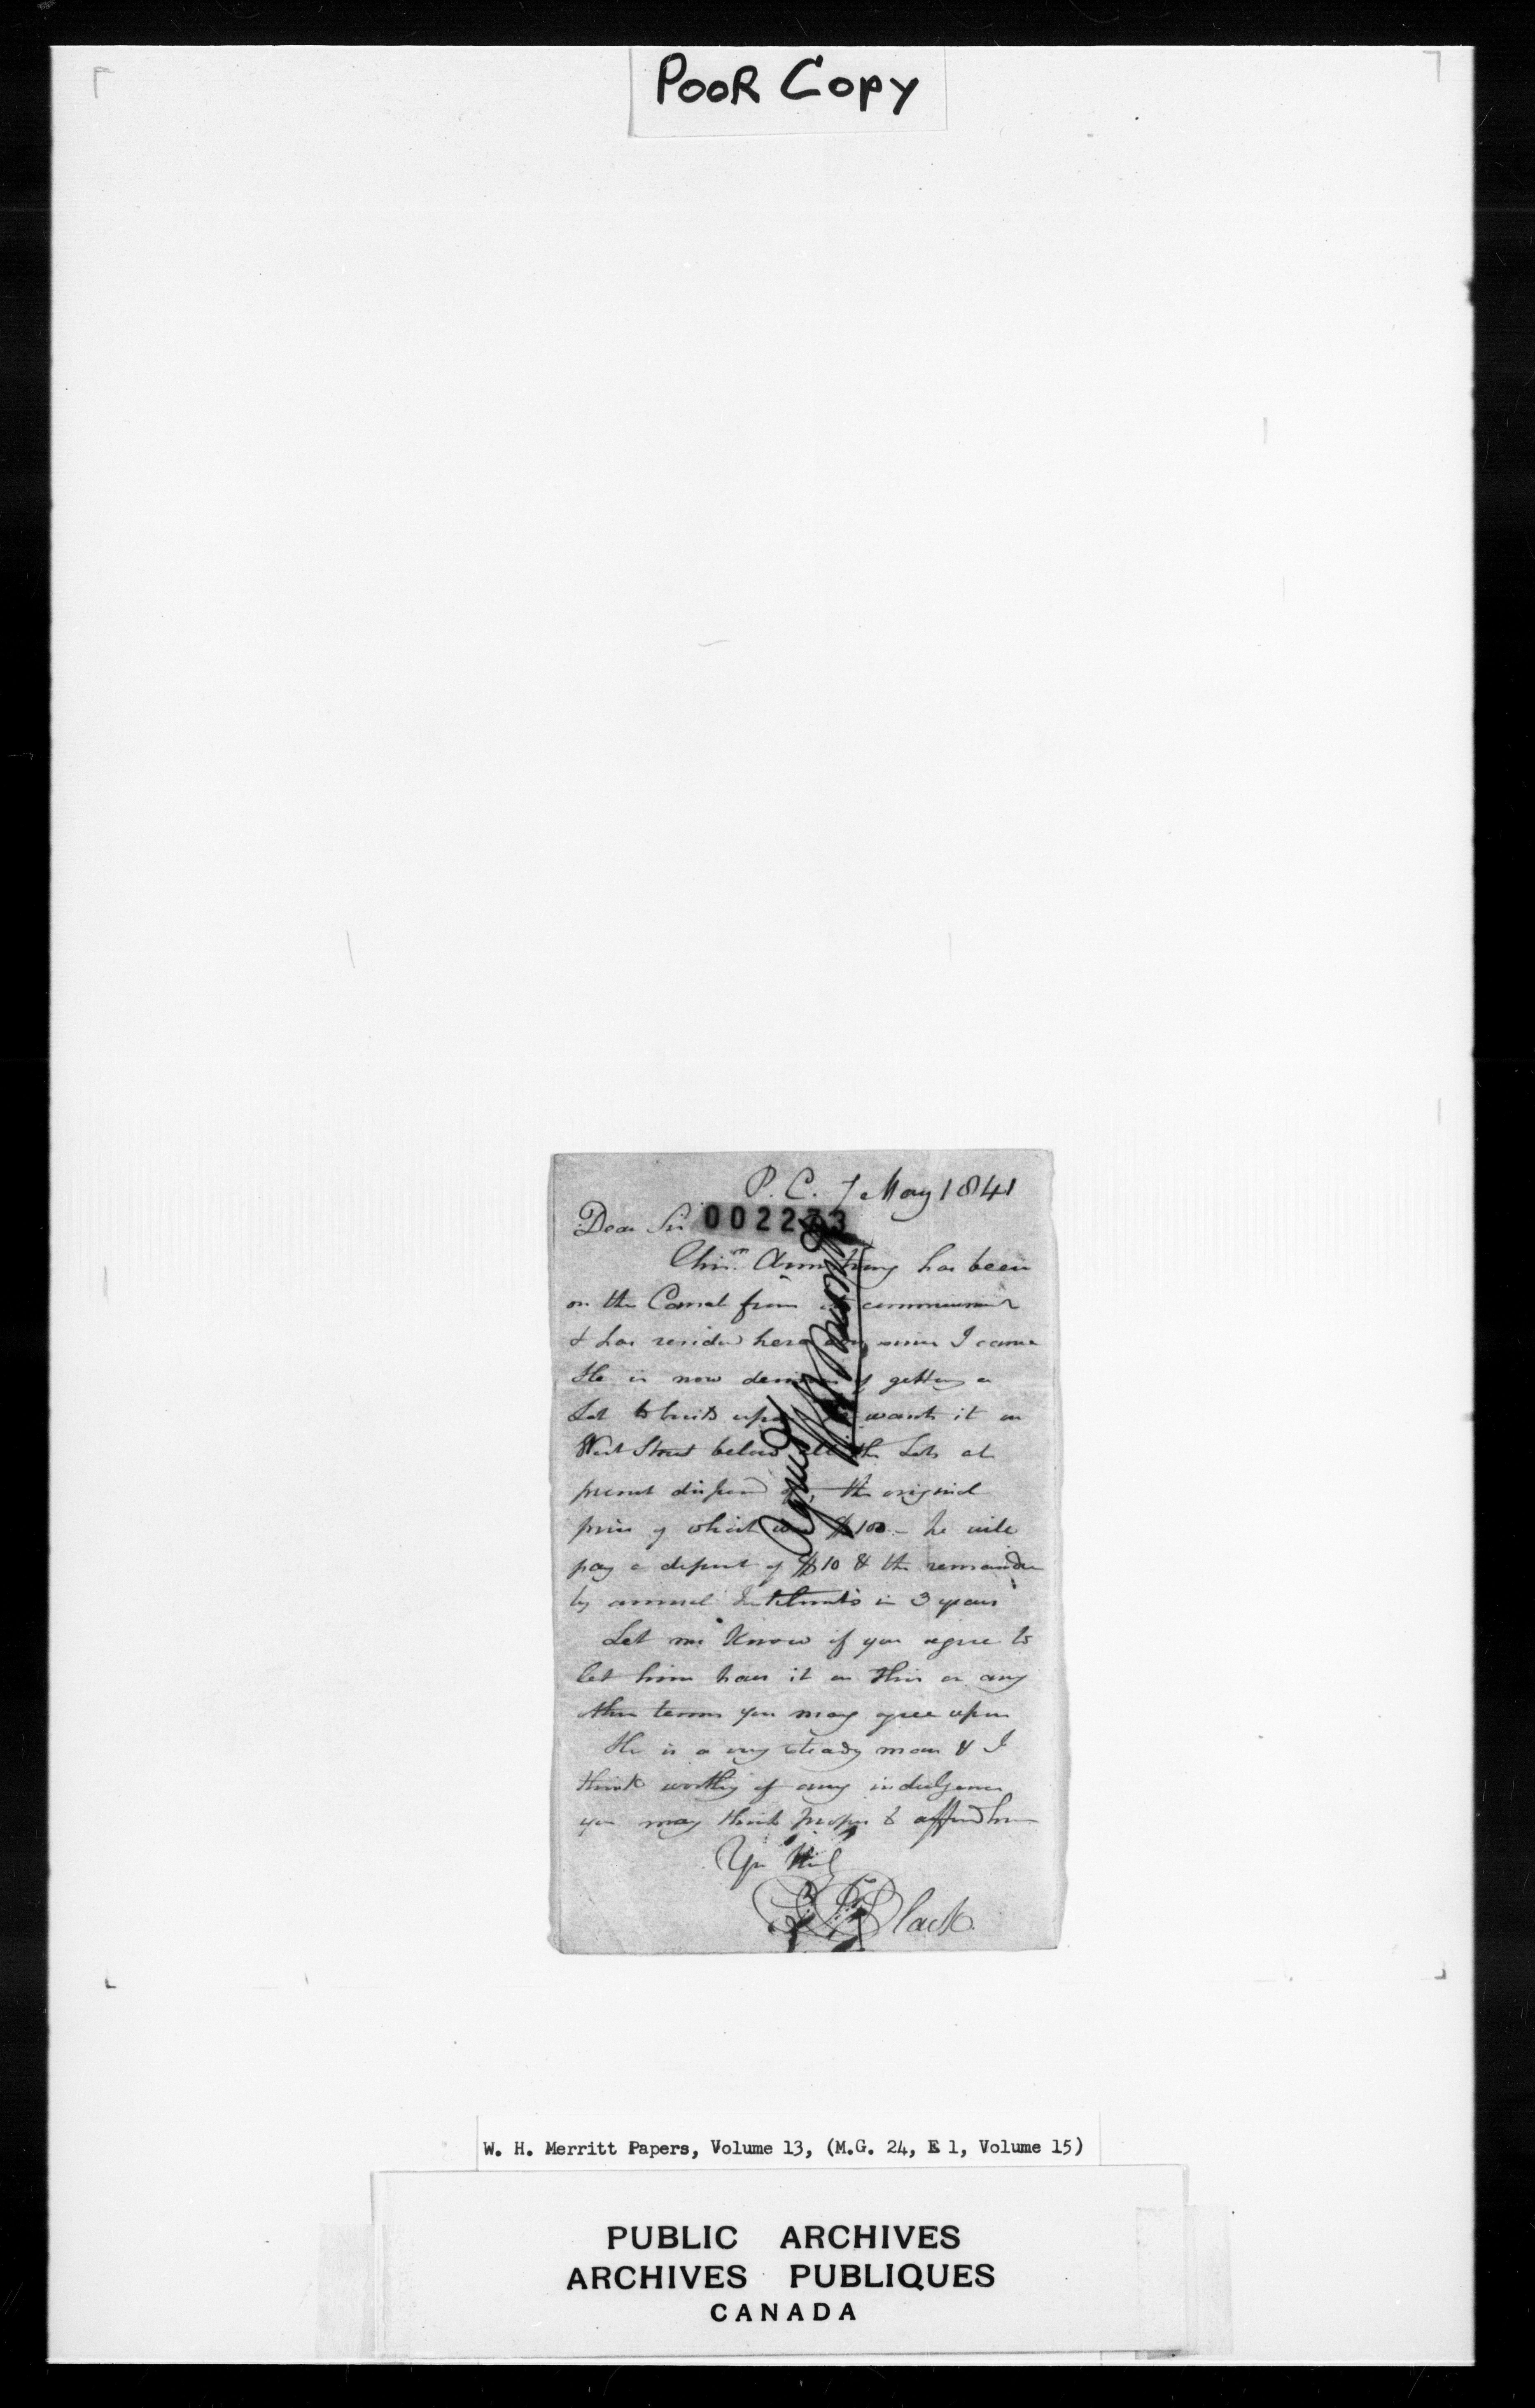 POOR COPY
P. C. 7 May 1841
Dear Sir
002273
Chrisr. Armstrong has been
on the Canal from its commencement
& has resided here ever since I came
He is now desirous of getting a
Lot to build upon he wants it on
West Street below all the Lots at
present disposed of, the original
price of which was $100 - he will
pay a deposit of $10 & the remainder
by annual Instalments in 3 years
Let me Know if you agree to
let him have it on this or any
other terms you may agree upon
He is a very steady man & I
think worthy of any indulgence
you may think proper to afford him
Black
Agreed
W. H. Merritt Papers, Volume 13, (M.G. 24, E 1, Volume 15)
PUBLIC ARCHIVES
ARCHIVES PUBLIQUES
CANADA